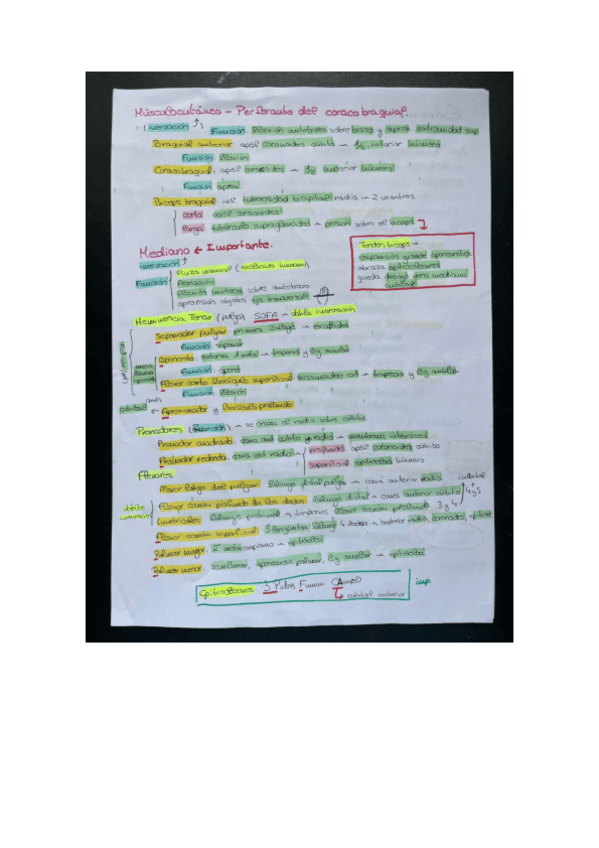 Músculocutáneo - Perforante del coracobraquial.
(Inervación) Función: flexión antebrazo sobre brazo y aprox. extremidad sup
Braquial anterior: apóf coronoides cúbito → 1/2 inferior húmero
Función: flexión
Coracobraquial: apóf → 1/2 superior húmero
Función: aprox
Bíceps braquial: tuberosidad bicipital radio → 2 vientres
corta: apóf coracoides
larga: tubérculo supraglenoideo → presión sobre el
Tendón bíceps →
expansión grande aponeurótica
abraza epitrocleares
queda debajo vena mediana
Mediano ← Importante.
inervación
Función: Pinza
Pronación
Flexión sobre antebrazo
aprehensión objetos eje transversal
Eminencia Tenar (pulgar) SOFA → doble inervación
Separador pulgar: primera falange → escafoides
Función: separar
Oponente: externa 1 meta → trapecio y lig anular
Función: opone
Flexor corto fascículo superficial: → trapecio y lig anular
Función: flexión
cúbital ← Aproximador y fascículo profundo
Pronadores (función) → se cruza el radio sobre cúbito
Pronador cuadrado: cara ant cúbito y radio → membrana interósea
Pronador redondo: cara ext radio
profundo: apóf coronoides cúbito
superficial: epitróclea húmero
Flexores
Flexor largo del pulgar: falange distal pulgar → cara anterior radio
cubital
doble inervación
Flexor común profundo de los dedos: falange distal → cara anterior cúbito 4 y 5
Lumbricales: falange proximal → tendones flexor común profundo 3 y 4
Flexor común superficial: 3 lengüetas falange 4 dedos → anterior radio, coronoides, epitróc
Palmar mayor: 2 metacarpiano → epitróclea
Palmar menor: aponeurosis palmar, lig anular → epitróclea
Epitrocleares 3 Putas Fuman CAmpo imp.
cubital anterior